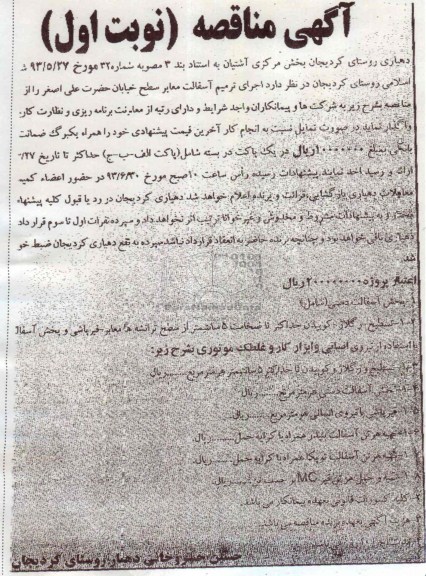 آگهی مناقصه (نوبت اول)
دهیاری روستای کردیجان بخش مرکزی آشتیان به استناد بند ۳ مصوبه شماره ۳۲ مورخ ۹۳/۵/۲۷ ش
اسلامی روستای کردیجان در نظر دارد اجرای ترمیم آسفالت معابر سطح خیابان حضرت علی اصغر را از
مناقصه بشرح زیر به شرکت ها و پیمانکاران واجد شرایط و دارای رتبه از معاونت برنامه ریزی و نظارت کار
واگذار نماید در صورت تمایل نسبت به انجام کار آخرین قیمت پیشنهادی خود را همراه یکبرگ ضمانت
بانکی بمبلغ ۱۰۰۰۰۰۰۰ ریال در یک پاکت در بسته شامل (پاکت الف-ب-ج) حداکثر تا تاریخ
ارائه و رسید اخذ نمایند پیشنهادات رسیده راس ساعت ۱۰ صبح مورخ ۹۳/۶/۳۰ در حضور اعضاء کمی
معاملات دهیاری بازگشایی، قرائت و برنده اعلام خواهد شد دهیاری کردیجان در رد یا قبول کلیه پیشنها
مختار و به پیشنهادات مشروط و مخدوش و غیر خوانا ترتیب اثر نخواهد داد و سپرده نفرات اول تا سوم قرار داد
دهیاری باقی خواهد بود و چنانچه برنده حاضر به انعقاد قرارداد نباشد سپرده به نفع دهیاری کردیجان ضبط خو
شد
اعتبار پروژه ۲۰۰۰۰۰۰۰۰ ریال
۱- پخش آسفالت دستی (شامل):
تسطیح، رگلاژ، کوبیدن حداکثر تا ضخامت ۵ سانتیمتر از سطح ترانشه ها، معابر- قیرپاشی و پخش آسفال
با استفاده از نیروی انسانی و ابزار کار و غلطک موتوری بشرح زیر:
تسطیح و رگلاژ و کوبیدن تا حداکثر ۵ سانتیمتر هر مترمربع ........ ریال
پخش آسفالت دستی هر مترمربع ........ ریال
قیرپاشی با نیروی انسانی هر مترمربع ........ ریال
تهیه هر تن آسفالت بیندر همراه با کرایه حمل ........ ریال
تهیه هر تن آسفالت توپکا همراه با کرایه حمل ........ ریال
تهیه و حمل هر تن قیر MC ........ ریال
کلیه کسورات قانونی بعهده پیمانکار می باشد
هزینه آگهی بعهده برنده مناقصه می باشد
دهیار روستای کردیجان